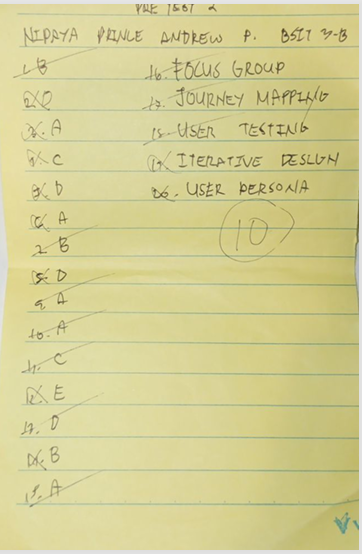 PRE TEST 2
NIPAYA PRINCE ANDREW P. BSIT 3-B
1. B
2. D
3. A
4. C
5. D
6. A
7. B
8. D
9. A
10. A
11. C
12. E
13. D
14. B
15. A
16. FOCUS GROUP
17. JOURNEY MAPPING
18. USER TESTING
19. ITERATIVE DESIGN
20. USER PERSONA
10